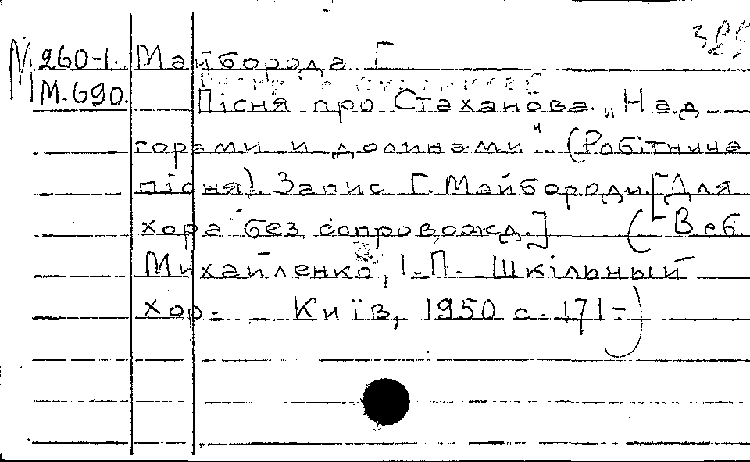 М 260-1. Майборода Г.
М.690. Пісня про Стаханова. „Над
горами и долинами" (Робітнича
пісня). Запис Г. Майбороди. [Для
хора без сопровожд.] (В сб.
Михайленко, І. П. Шкільный
хор. Київ, 1950 с. 171-)